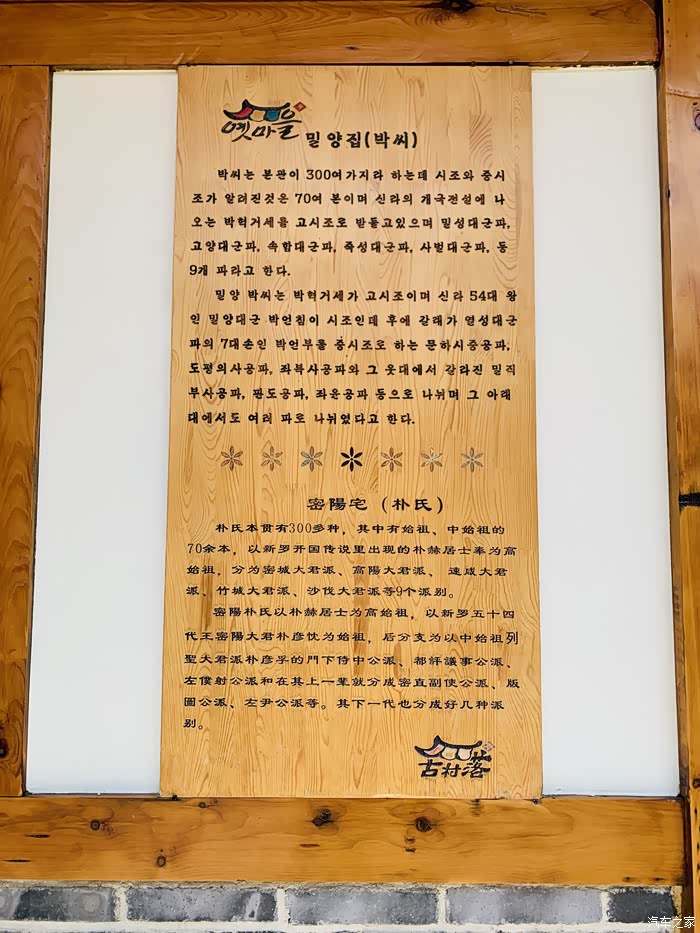 옛마을
밀양집(박씨)
박씨는 본관이 300여가지라 하는데 시조와 중시
조가 알려진것은 70여 본이며 신라의 개국전설에 나
오는 박혁거세를 고시조로 받들고있으며 밀성대군파,
고양대군파, 속함대군파, 죽성대군파, 사벌대군파, 등
9개 파라고 한다.
밀양 박씨는 박혁거세가 고시조이며 신라 54대 왕
인 밀양대군 박언침이 시조인데 후에 갈래가 열성대군
파의 7대손인 박언부를 중시조로 하는 문하시중공파,
도평의사공파, 좌복사공파와 그 웃대에서 갈라진 밀직
부사공파, 판도공파, 좌윤공파 등으로 나뉘며 그 아래
대에서도 여러 파로 나뉘였다고 한다.
密陽宅（朴氏）
朴氏本贯有300多种，其中有始祖、中始祖的
70余本，以新罗开国传说里出现的朴赫居士奉为高
始祖，分为密城大君派、高陽大君派、 速咸大君
派、竹城大君派、沙伐大君派等9个派别。
密陽朴氏以朴赫居士为高始祖，以新罗五十四
代王密陽大君朴彦忱为始祖，后分支为以中始祖列
聖大君派朴彦孚的門下侍中公派、都評議事公派、
左僕射公派和在其上一辈就分成密直副使公派、版
圖公派、左尹公派等。其下一代也分成好几种派
别。
古村落
汽车之家